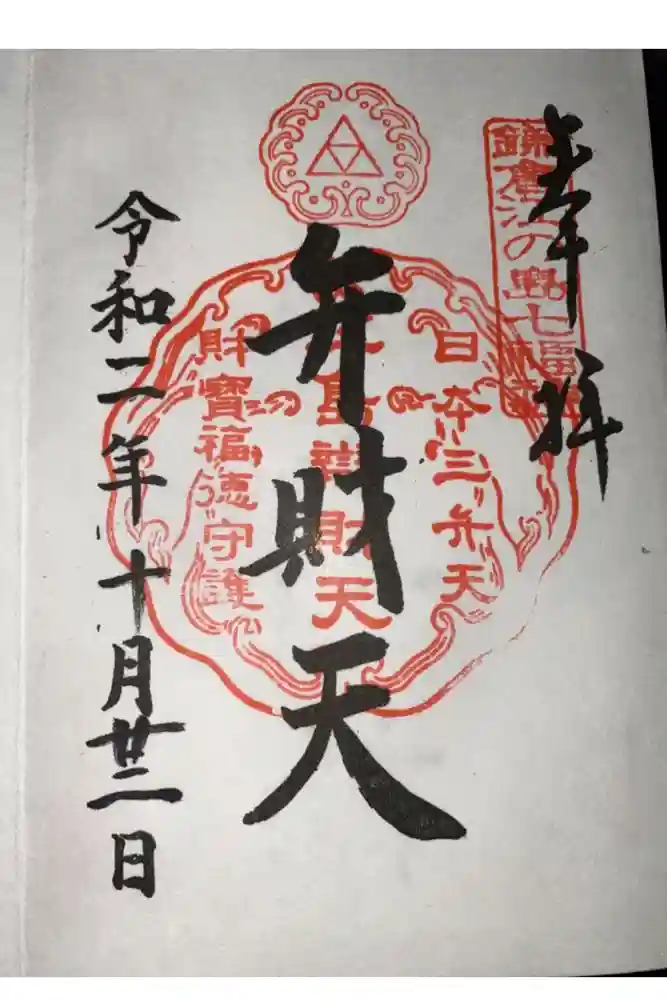 奉拝
鎌倉江の島七福神
日本三弁天
江島辨財天
財寶福徳守護
弁財天
令和二年十月廿二日